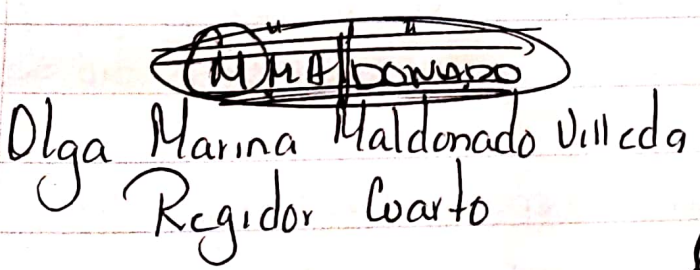 MMALDONADO
Olga Marina Maldonado Villeda
Regidor Cuarto